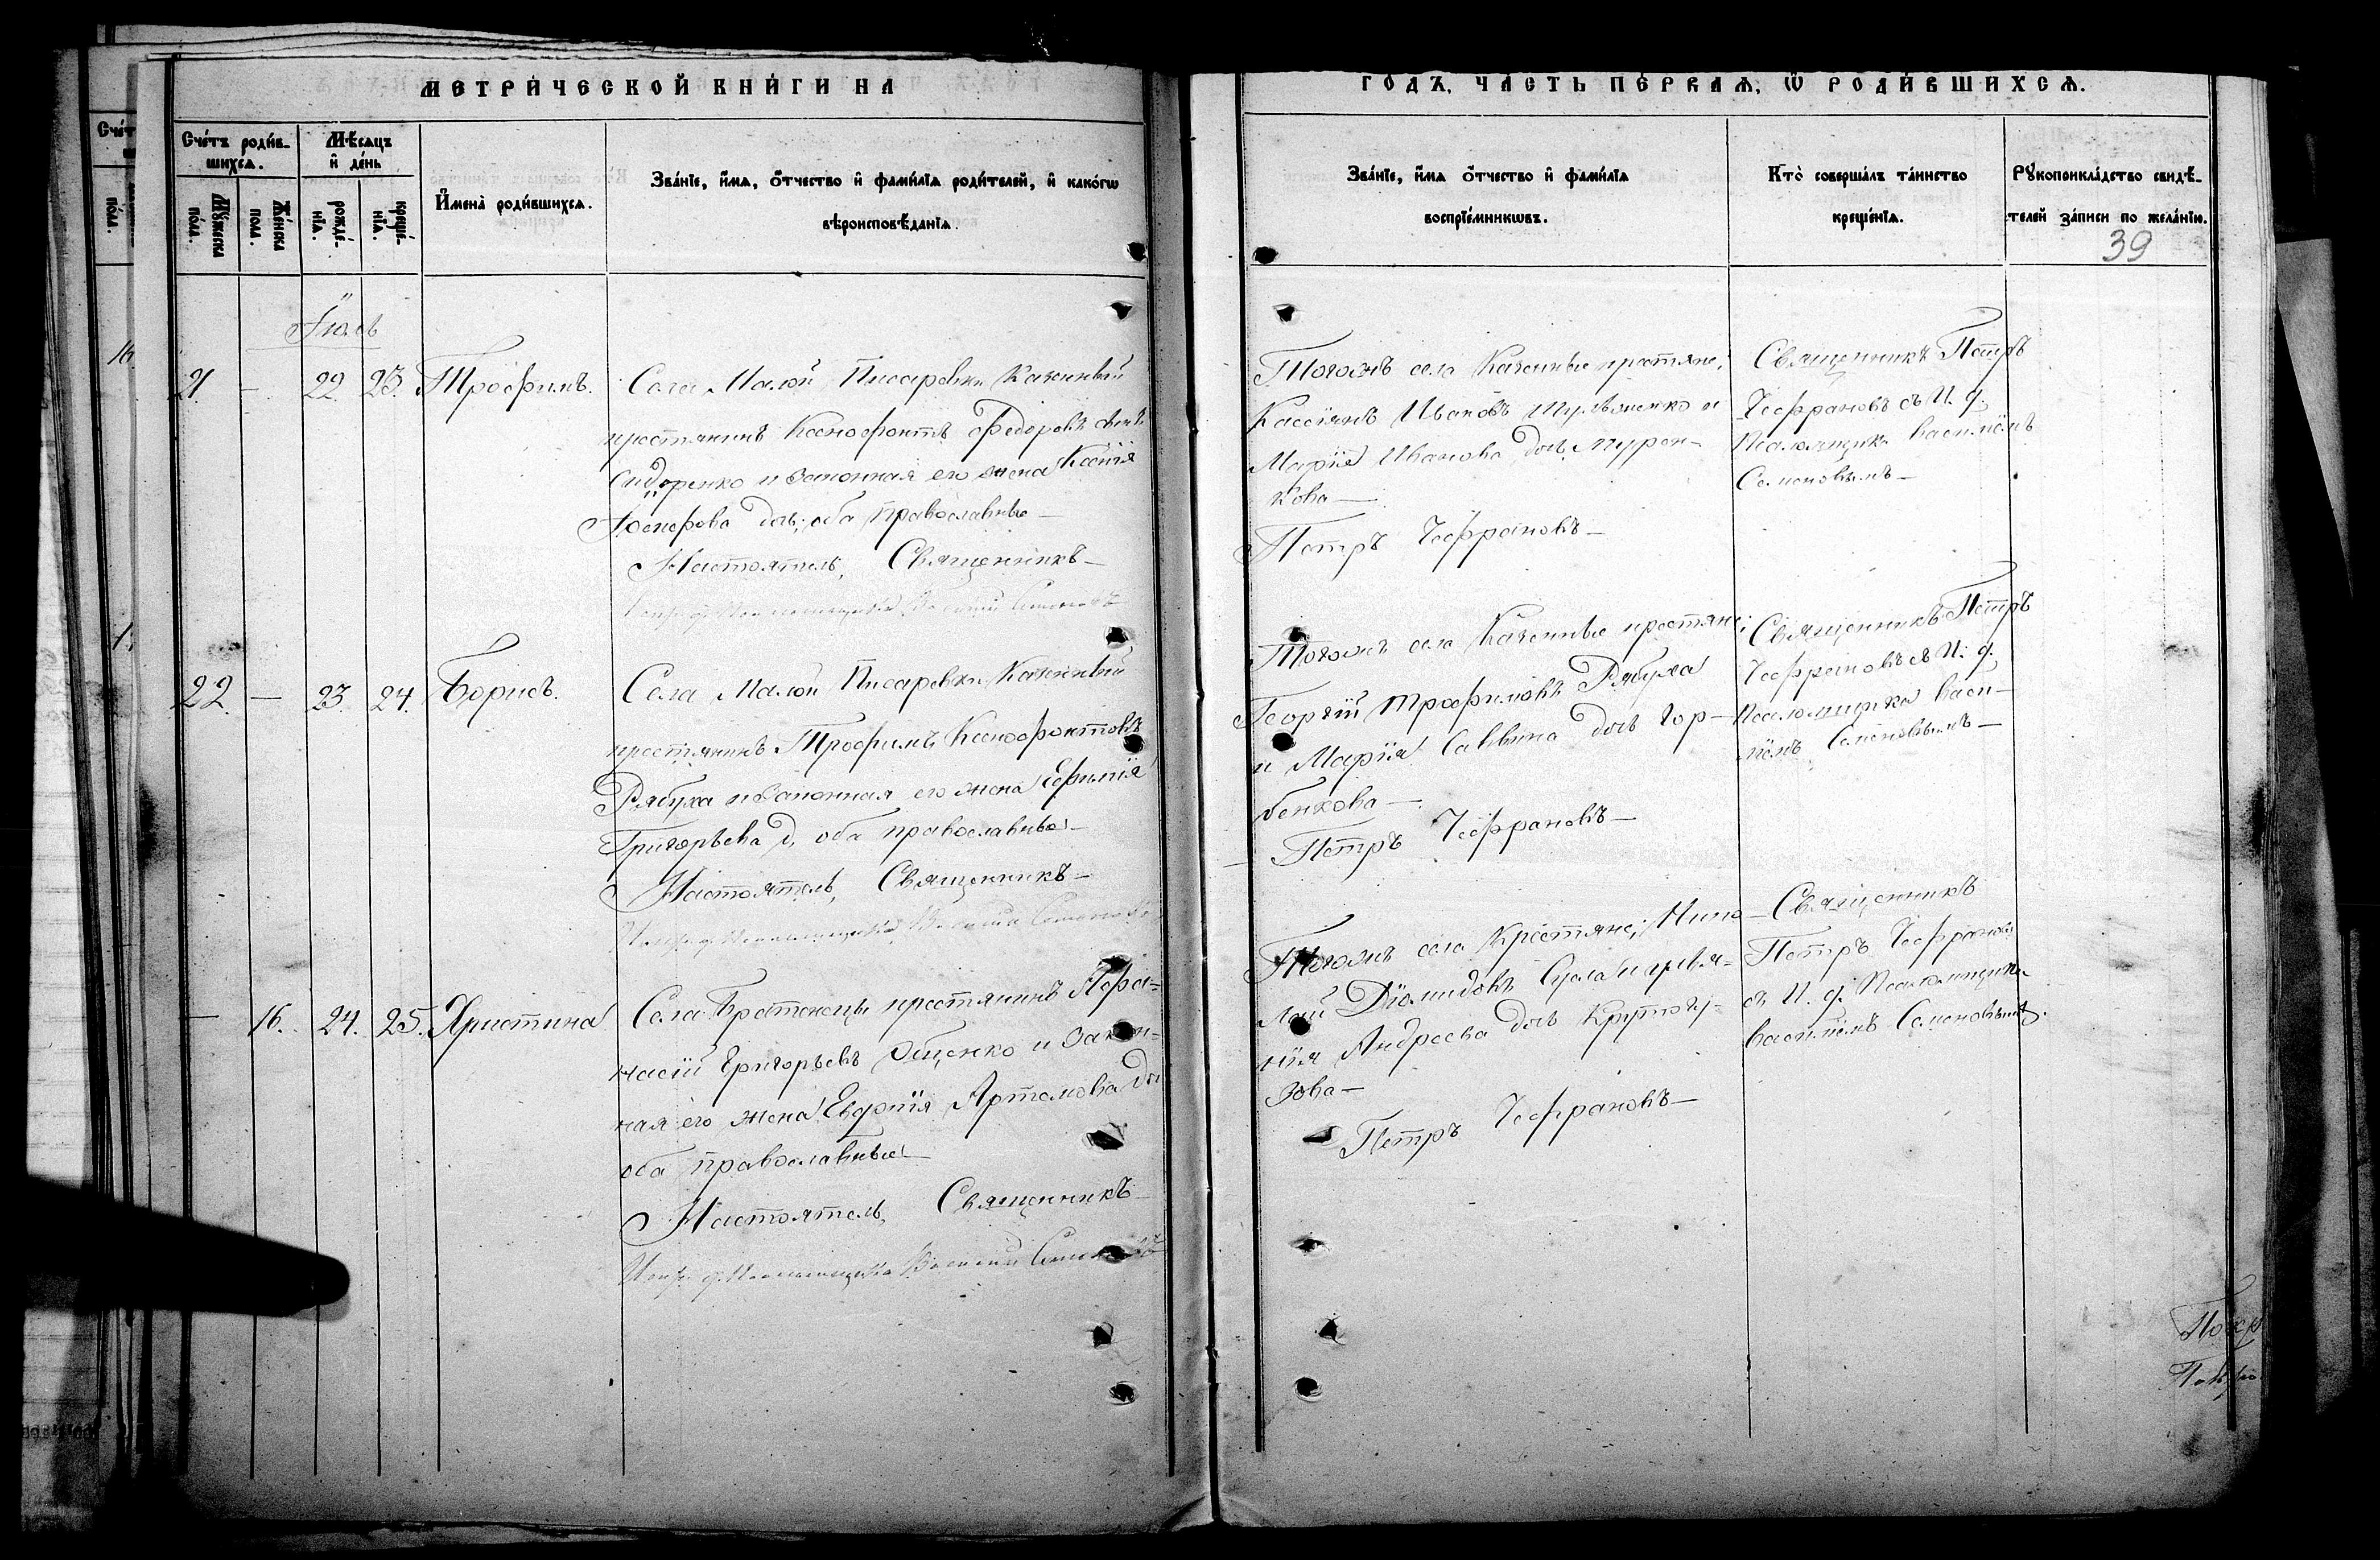 МЕТРИ́ЧЕСКОЙ КНИ́ГИ НА
ГОДЪ, ЧА́СТЬ ПЕ́РВАѦ, Ѿ РОДИ́ВШИХСѦ.
Сче́тъ роди́в-
шихсѧ.
Мѣ́сѧцъ
и҆ де́нь
Мꙋ́жеска
по́ла.
Же́нска
пола.
рожде́-
нїѧ.
креще́-
нїѧ.
И҆мена̀ роди́вшихсѧ.
Зва́нїе, и҆́мѧ, ѻ҆́тчество и҆ фами́лїѧ роди́телей, и҆ како́гѡ
вѣроисповѣ́данїѧ.
Зва́нїе, и҆́мѧ ѻ҆́тчество и҆ фами́лїѧ
воспрїе́мникѡвъ.
Кто̀ соверша́лъ та́инство
креще́нїѧ.
Рꙋкоприкла́дство свидѣ́-
телей за́писи по жела́нїю.
39
Іюль
21. — 22. 23. Трофимъ.
Села Малой Писаревки Казенный
крестянинъ Ксенофонтъ Федоровъ сынъ
Сидоренко и законная его жена Ксенія
дочь, оба православные —
Настоятель, Священникъ —
Псаломщика Василий Семоновъ
Тогожъ села Казенные крестяне;
Кассіянъ Ивановъ и
Марія Иванова дочь
кова —
Петръ Чефрановъ —
Священникъ Петръ
Чефрановъ съ И. д.
Псаломщика Василіемъ
Семоновымъ —
22. — 23. 24. Борисъ.
Села Малой Писаревки Казенный
крестянинъ Трофимъ Ксенофонтовъ
Рябуха и законная его жена Ефимія
Григорьева д, оба православные —
Настоятель, Священникъ —
Псаломщика Василий Семоновъ
Тогожъ села Казенные крестяне;
Георгій Трофимовъ Рябуха
и Марія Саввина дочь Гор-
бенкова —
Петръ Чефрановъ —
Священникъ Петръ
Чефрановъ съ И. д.
Псаломщика Васи-
ліемъ Семоновымъ —
— 16. 24. 25. Христина
Села Братеницы крестянинъ Афа=
насій Григорьевъ Ященко и закон=
ная его жена Евдокія Артемова дочь
оба православные —
Настоятель, Священникъ —
Псаломщика Василий Семоновъ
Тогожъ села Крестяне; Нико
лай Діомидовъ
нія Андреева дочь
зова —
Петръ Чефрановъ —
Священникъ
Петръ Чефрановъ
съ И. д. Псаломщика
Василіемъ Семоновымъ.